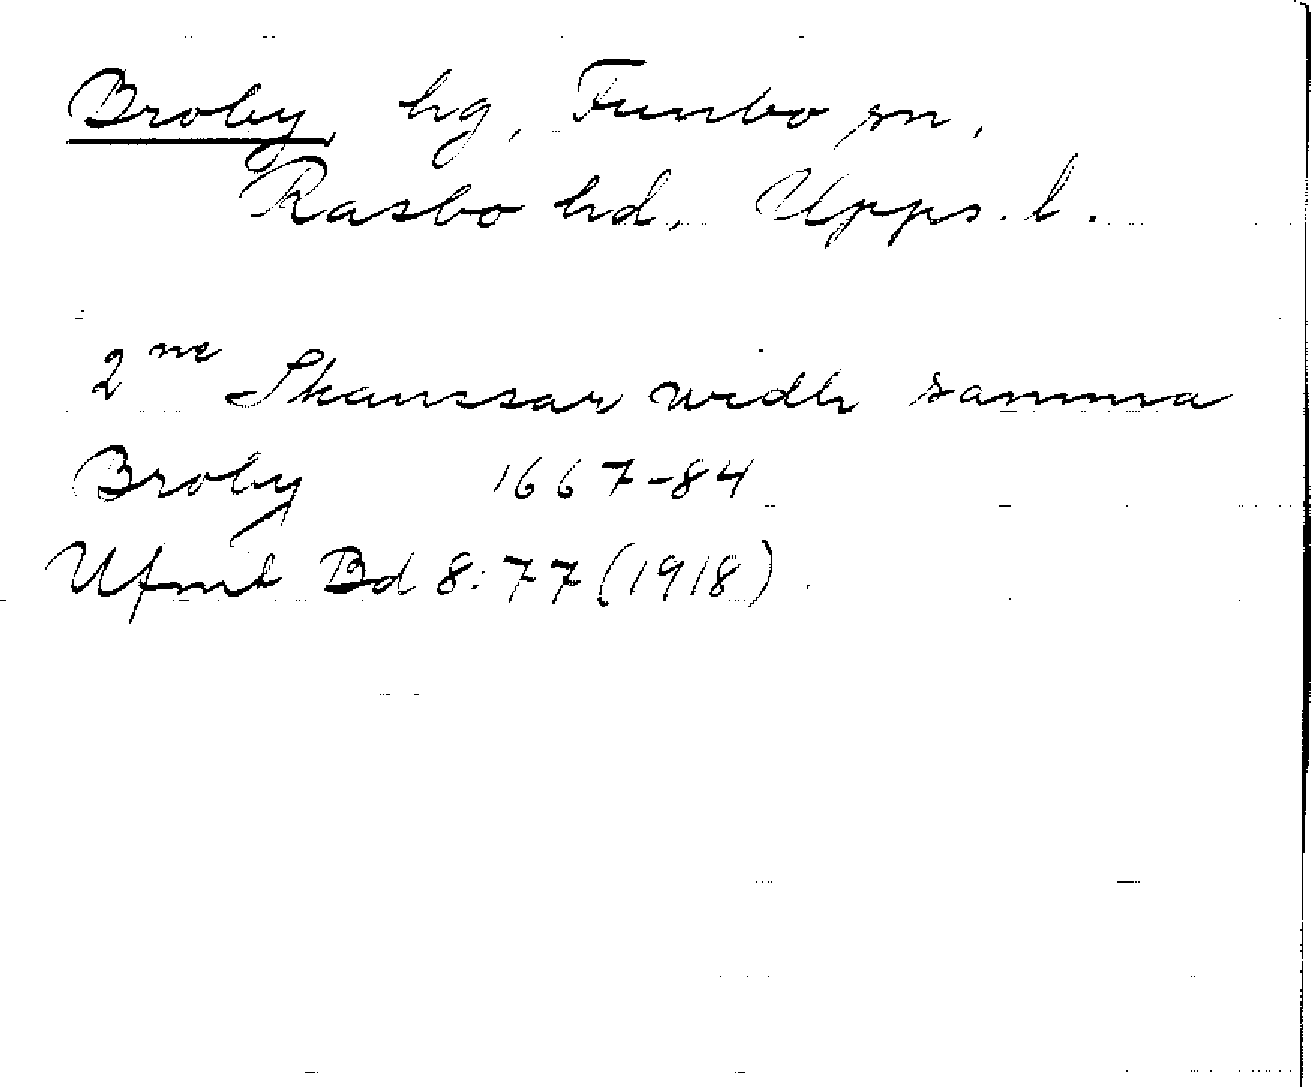 Broby, hg, Funbo sn,
Rasbo hd, Upps. l.
2ne Skanssar widh samma
Broby 1667-84
Ufmt Bd 8:77 (1918).